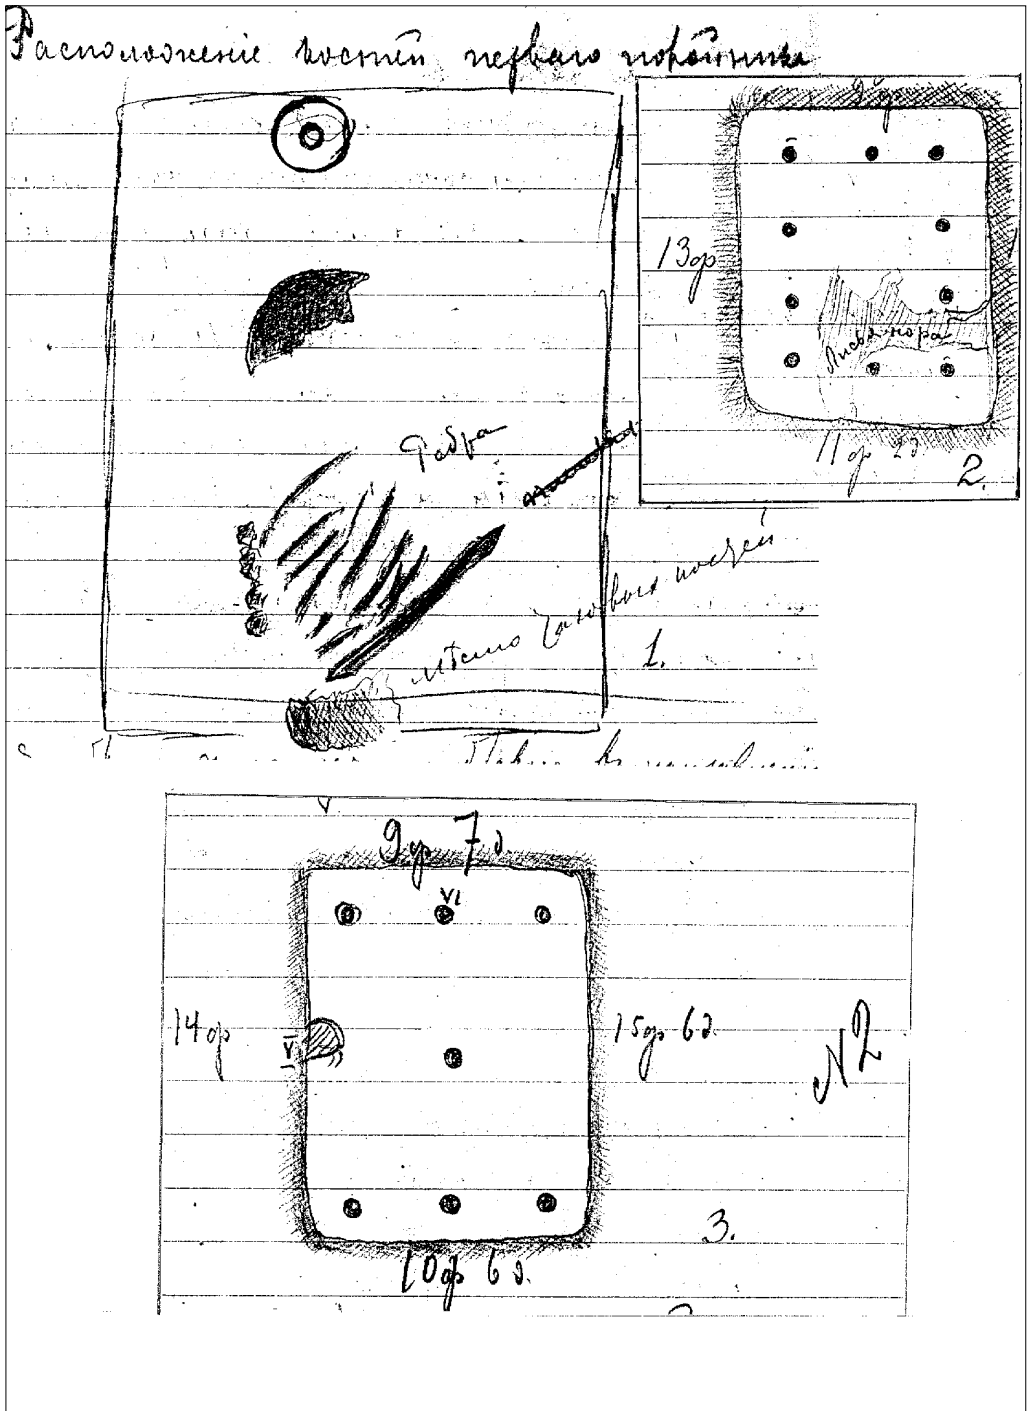 Расположеніе костей перваго покойника
Ребра
Мѣсто тазовыхъ костей
1.
9 ф
13 ф
Лисья нора
11 ф 2 д
2.
9 ф 7 д.
VI
14 ф
V
15 ф 6 д.
N 2
10 ф 6 д.
3.